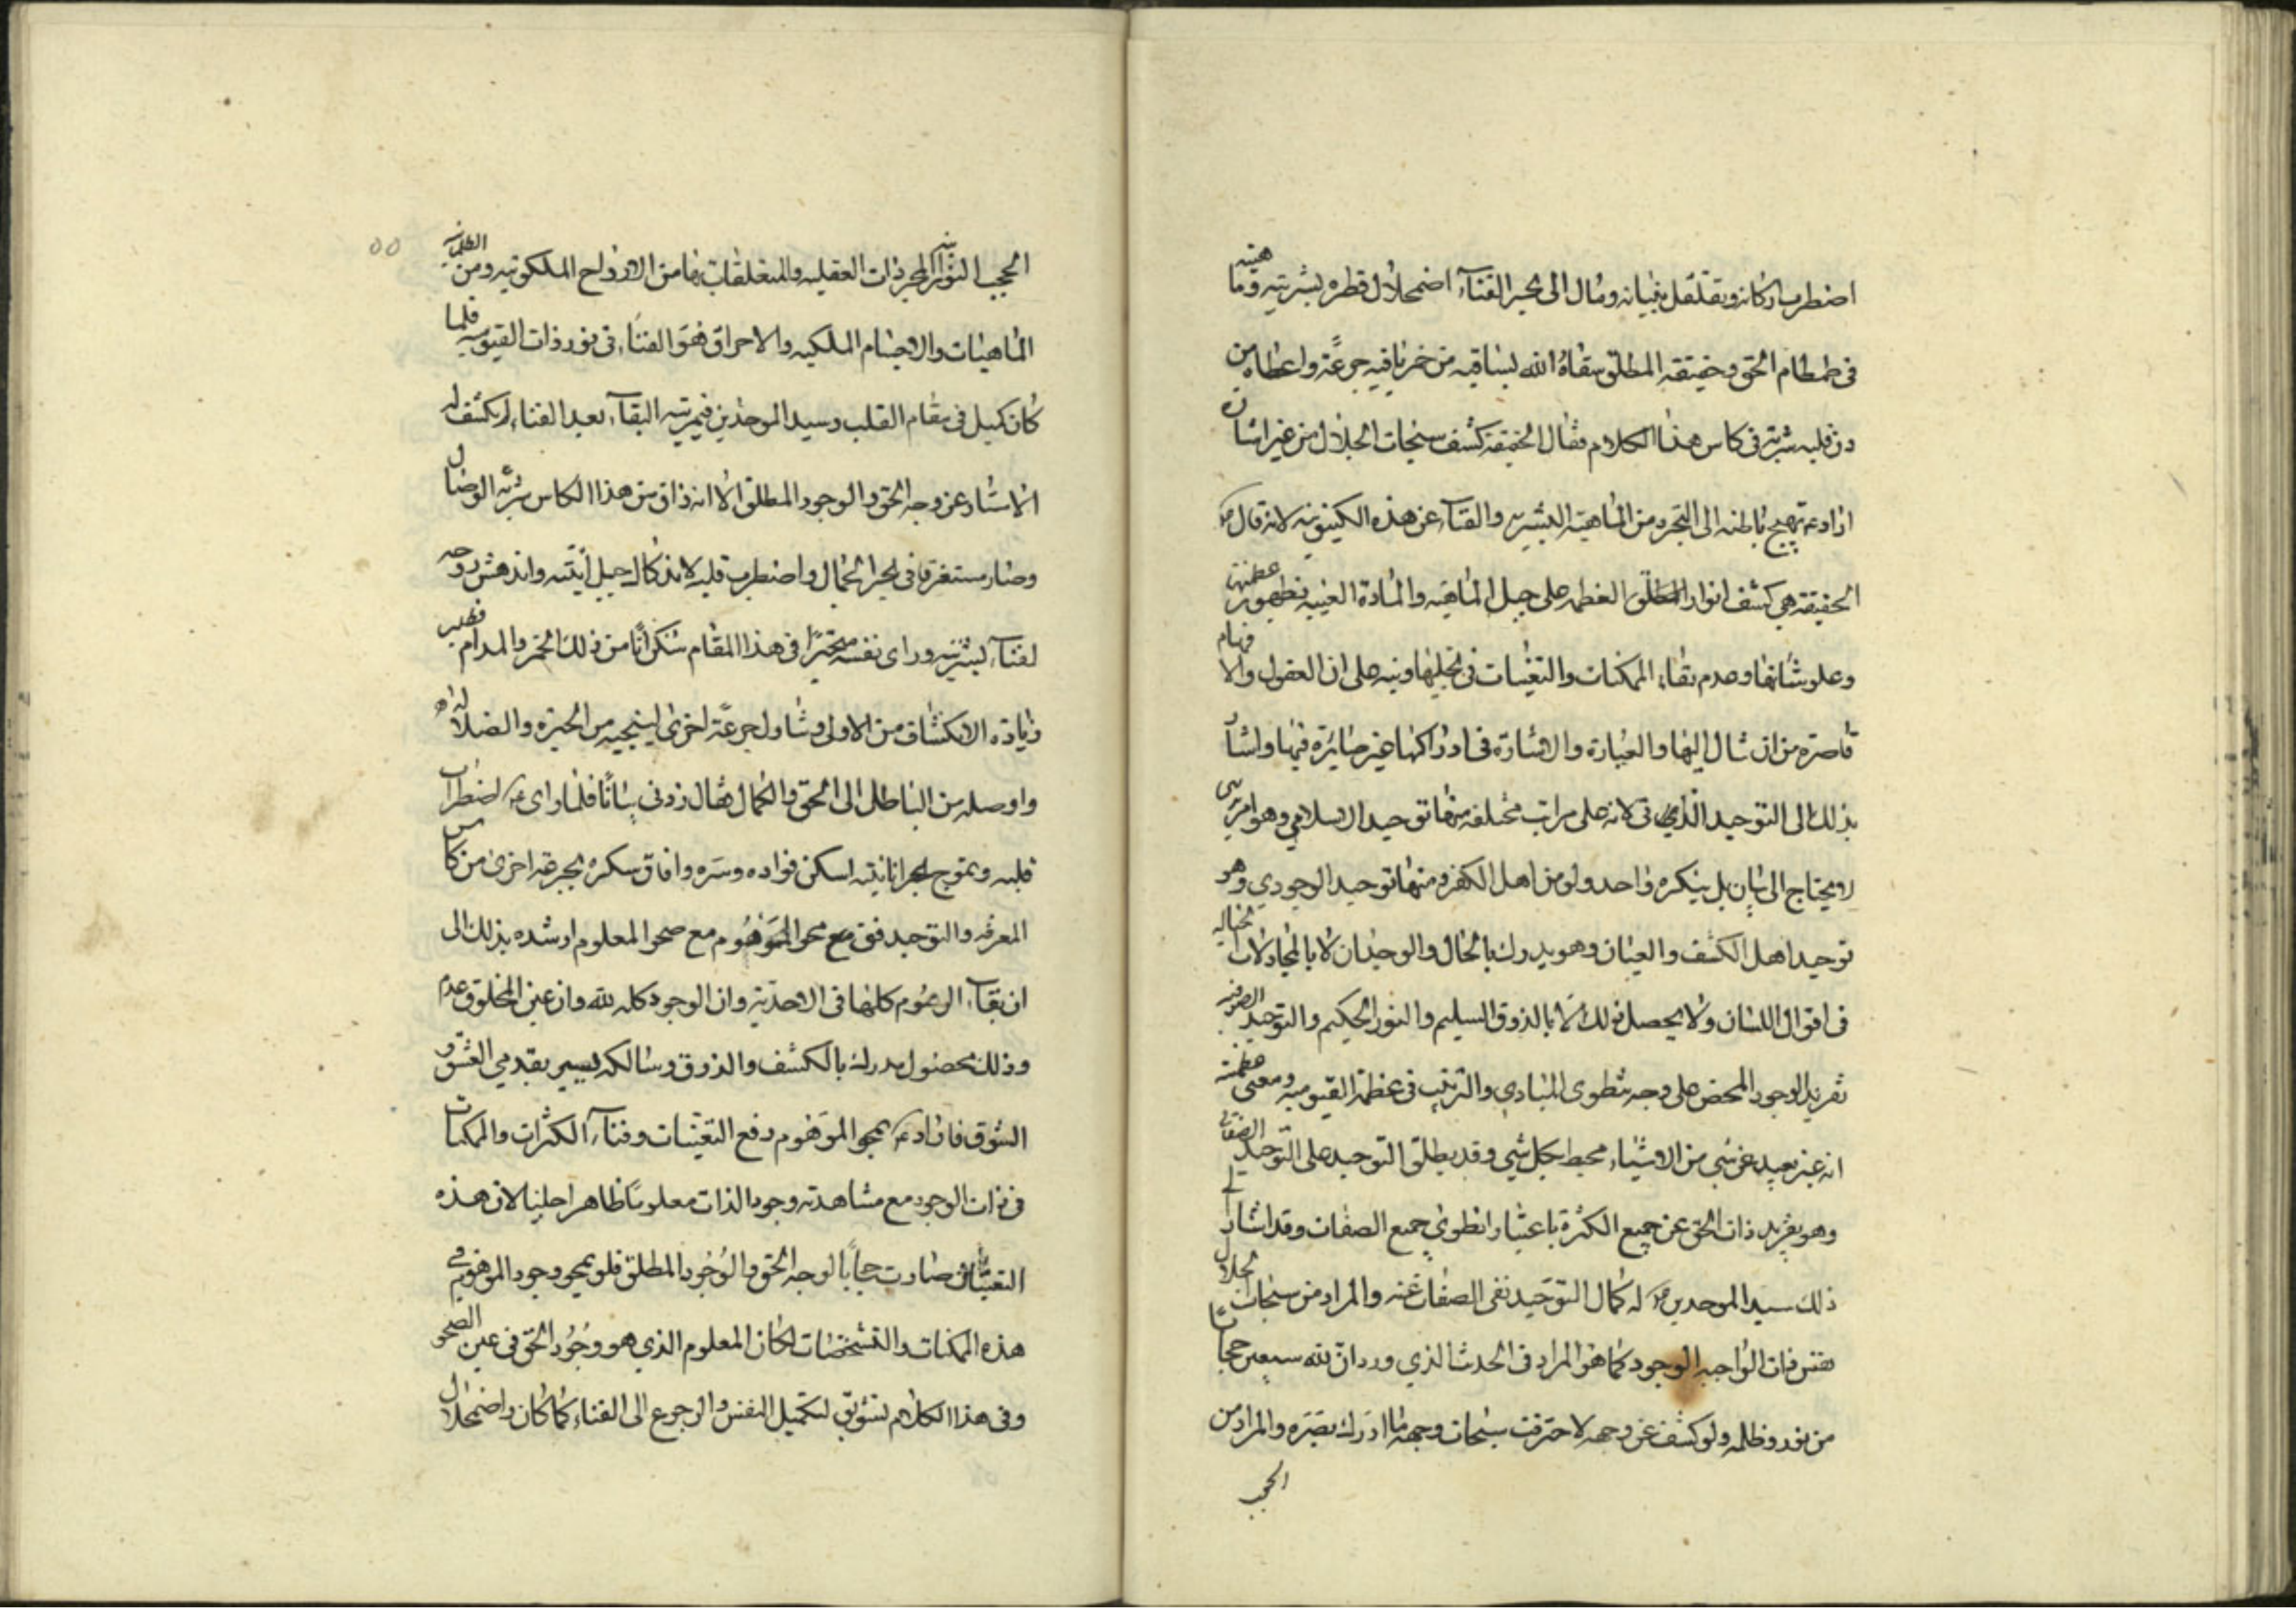 اضطرب اركانه وتقلقل بنيانه ومال الى بحر الفناء اضمحلال قطره بشريته وماهيته
فى طمطام الحق وحقيقه المطلق سقاه الله بساقيه من خمر باقيه جرعة واعطاه من
دن قلبه شربة فى كاس هذا الكلام فقال الحقيقة كشف سبحات الجلال من غير اشارة
اراد ع تهييج باطنه الى التجرد من الماهية البشريه والفناء عن هذه الكينونيه لانه قال
الحقيقة هي كشف انوار المطلق العظمه على جبل الماهيه والمادة الغيبيه بظهور عظمتها
وعلو شانها وعدم بقاء الممكنات والتعينات فى تجليها ونبه على ان العقول والافهام
قاصرة من ان تنال اليها والعبارة والاشارة فى ادراكها غير صائرة فيها واشار
بذلك الى التوحيد الذاتي لانه على مراتب مختلفه منها توحيد الاسلامي وهو امر
لا يحتاج الى بيان بل ينكره واحد ولو من اهل الكفر ومنها توحيد الوجودي وهو
توحيد اهل الكشف والعيان وهو يدرك بالحال والوجدان لا بالمجادلات
فى اقوال اللسان ولا يحصل ذلك الا بالذوق السليم والنور الحكيم والتوحيد الصرفيه
تفريد الوجود المحض على وجه ينطوى المبادي والترتيب فى عظمة القيوميه ومعنى عظمته
انه غير بعيد عن شي من الاشياء محيط بكل شي وقد يطلق التوحيد على التوحيد الصفاتى
وهو تفريد ذات الحق عن جميع الكثرة باعتبار انطوي جميع الصفات وقد اشار الى
ذلك سيد الموحدين له كمال التوحيد نفى الصفات عنه والمراد من سبحات الجلال
نفس ذات الواجب الوجود كما هو المراد فى الحديث الذي ورد ان لله سبعين حجابا
من نور وظلمه ولو كشف عن وجهه لاحترقت سبحات وجهه ما ادرك بصره والمراد من
الحجب
٥٥
الحجب النورانيه المجردات العقليه والمتعلقات بها من الارواح الملكوتيه ومن الظلمانيه
الماهيات والاجسام الملكيه والاحراق هو الفناء فى نور ذات القيوميه فلما
كان كميل فى مقام القلب وسيد الموحدين فى مرتبه البقاء بعد الفناء لم يكشف له
الاستار عن وجه الحق والوجود المطلق الا انه ذاق من هذا الكاس شربه الوصال
وصار مستغرقا فى بحر الجمال واضطرب قلبه لاندكاك جبل انيته واندهش روحه
لفناء بشريته وراى نفسه متحيرا فى هذا المقام سكرانا من ذلك الخمر والمدام فطلب
زيادة الانكشاف من الاولى وتناول جرعة اخرى لينجيه من الحيرة والضلاله
واوصله من الباطل الى الحق والكمال فقال زدنى بيانا فلما راى ع اضطراب
قلبه وتموج بحر انانيته اسكن فواده وسره وافاق سكره بجرعه اخرى من كاس
المعرفه والتوحيد فق مع محو الموهوم مع صحو المعلوم ارشده بذلك الى
ان بقاء الرسوم كلها فى الاحدية وان الوجود كله لله وان عين المخلوق عدم
وذلك بحصول مدرك بالكشف والذوق وسالكه يسير بقدمي العشق و
الشوق فاراد ع بمحو الموهوم دفع التعينات وفناء الكثرات والممكنات
فى ذات الوجود مع مشاهدته وجود الذات معلوما ظاهرا جليا لان هذه
التعينات صارت حجابا لوجه الحق والوجود المطلق فلو يمحو وجود الموهوم فى
هذه الممكنات والتشخصات لكان المعلوم الذي هو وجود الحق فى عين الصحو
وفى هذا الكلام تشويق لتكميل النفس والرجوع الى الفناء كما كان واضمحلال